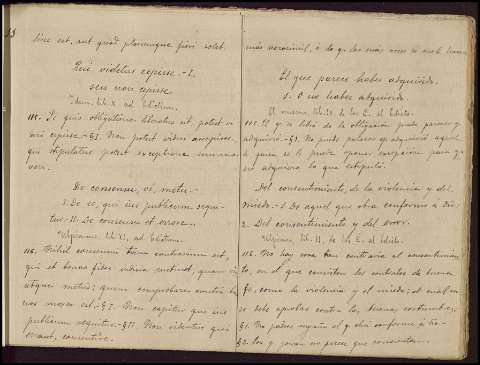 sine est, aut quod plerumque fieri solet.
Qui videtur cepisse.-1.
seu non cepisse
Idem, lib. X. ad Edictum.
115. Si quis obligatione liberatus sit, potest vi-
deri cepisse.-§1. Non potest videri accepisse,
qui stipulatus potest exceptione summove-
ri.
De consensu, vi, metu.-
1. De eo, qui ius publicum sequi-
tur.-11. De consensu et errore.-
Ulpianus, lib. XI, ad Edictum.
116. Nihil consensui tam contrarium est,
qui et bonae fidei iudicia sustinet, quam vis
atque metus; quem comprobare contra bo-
nos mores est.-§1. Non capitur qui ius
publicum sequitur.-§11. Non videntur qui
errant, consentire.
más verosímil, ó lo q. las más veces se suele hacer.
El que parece haber adquirido.
1. O no haber adquirido.
El mismo, lib. X, de los C. al Edicto.
115. Si y se libró de la obligación puede parecer q.
adquirió.-§1. No puede parecer q. adquirió aquel
á quien se le puede oponer excepción para q.
no adquiera lo que estipuló.
Del consentimiento, de la violencia y del
miedo.-1. De aquel que obra conforme a dro.
2. Del consentimiento y del error.
Ulpiano, lib. 11, de los C. al Edicto.
116. No hay cosa tan contraria al consentimien-
to, en el que consisten los contratos de buena
fé, como la violencia y el miedo; el cual no
se debe aprobar contra las buenas costumbres.
§1. No padece engaño el q. obra conforme á dro.
§2. Los q. yerran no parece que consienten.